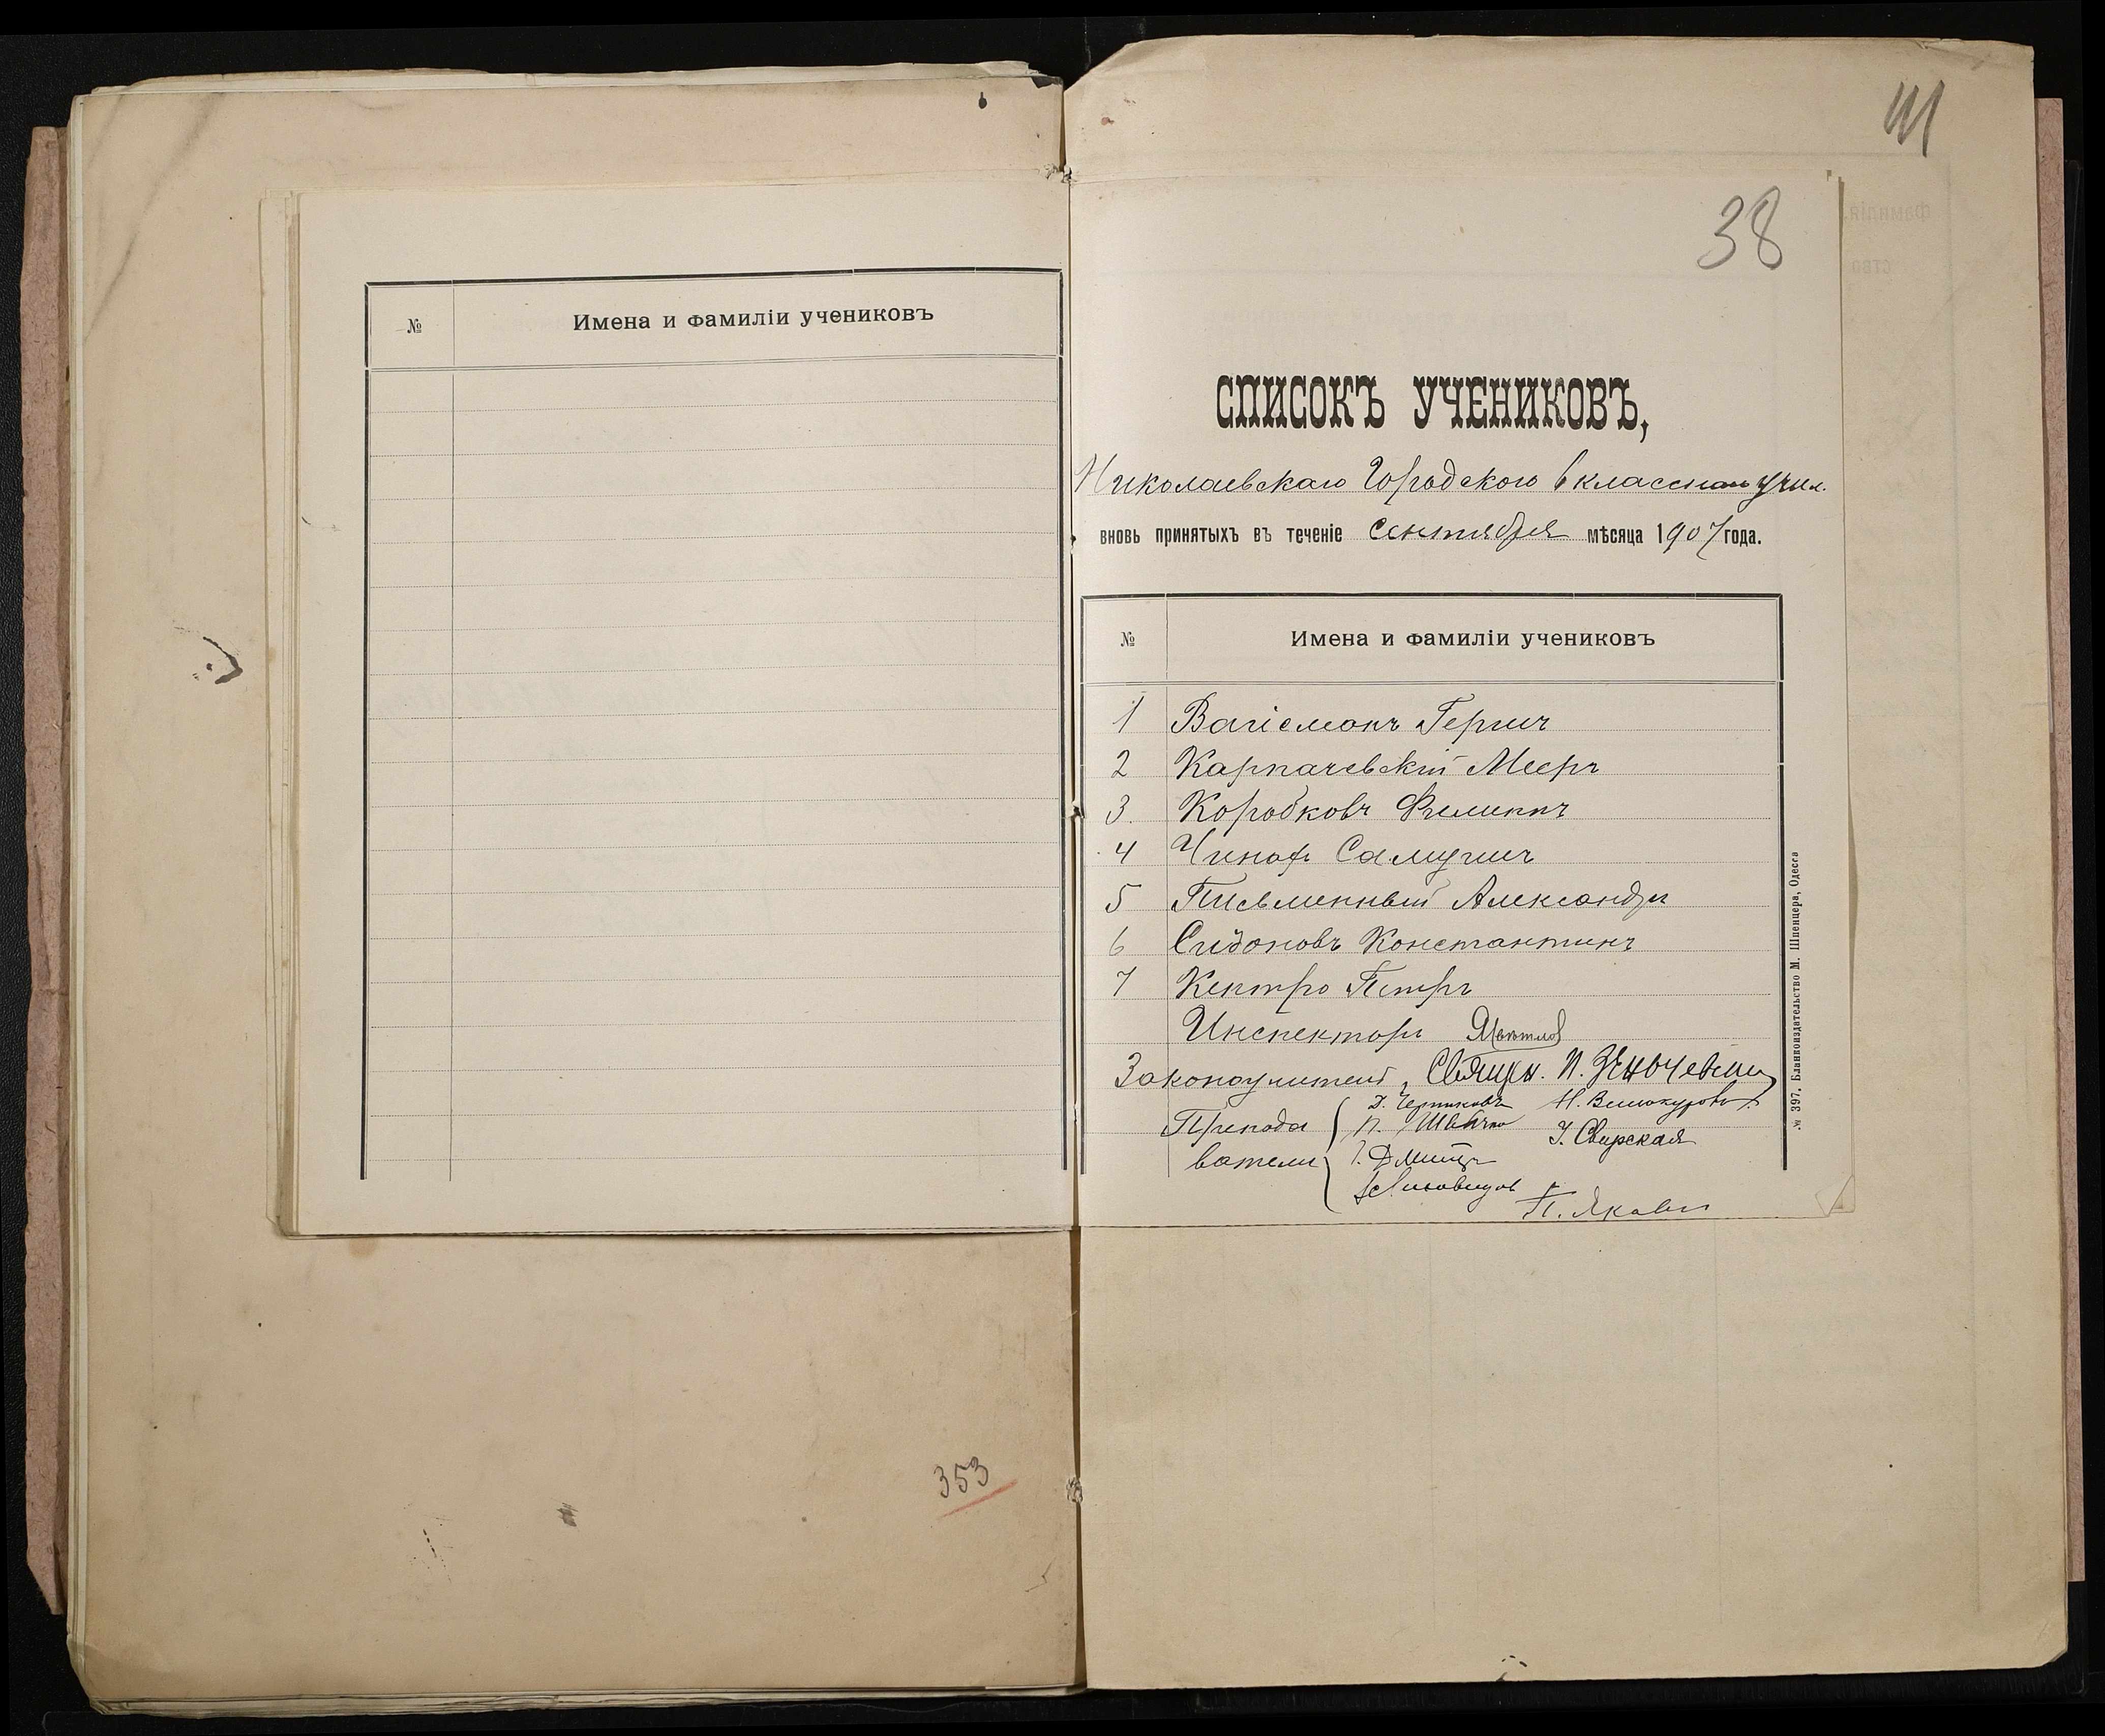 № Имена и фамиліи учениковъ
353
38
СПИСОКЪ УЧЕНИКОВЪ,
Николаевскаго Городского 6 классн учил.
вновь принятыхъ въ теченіе Сентября мѣсяца 1907 года.
№ Имена и фамиліи учениковъ
1 Герш
2 Карпачевскій Мееръ
3. Коробковъ Филиппъ
4 Самуилъ
5 Письменный Александръ
6 Сидоновъ Константинъ
7 Кентро Петръ
Инспекторъ
Законоучитель, Священ. П.
Препода
ватели
Д. Чертковъ Н. Винокуровъ
П. Швачко З. Свирская
П. Яковл
№ 397. Бланкоиздательство М. Шпенцера, Одесса